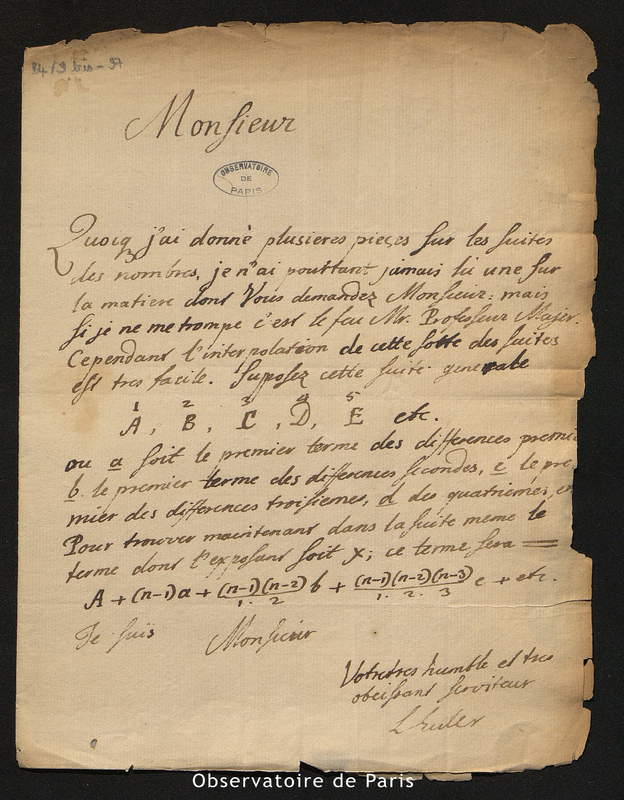 84/3 bis - 37
Monsieur
OBSERVATOIRE
DE
PARIS
Quoiq j'ai donné plusieres pieçes sur les suites
des nombres, je n'ai pourtant jamais lu une sur
la matiere dont Vous demandez Monsieur: mais
si je ne me trompe c'est le feu Mr. Professeur Majer.
Cependant l'interpolation de cette sorte des suites
est tres facile. Suposez cette suite generale
1 2 3 4 5
A, B, C, D, E etc.
ou a soit le premier terme des differences premie
b. le premier terme des differences secondes, c le pre
mier des differences troisiemes, d des quatriemes, et
Pour trouver maintenant dans la suite meme le
terme dont l'exposant soit x; ce terme sera =
A + (n-1)a + (n-1)(n-2)/1. 2 b + (n-1)(n-2)(n-3)/1. 2. 3 c + etc.
Je suis Monsieur
Votre tres humble et tres
obeissant serviteur
L Euler
Observatoire de Paris